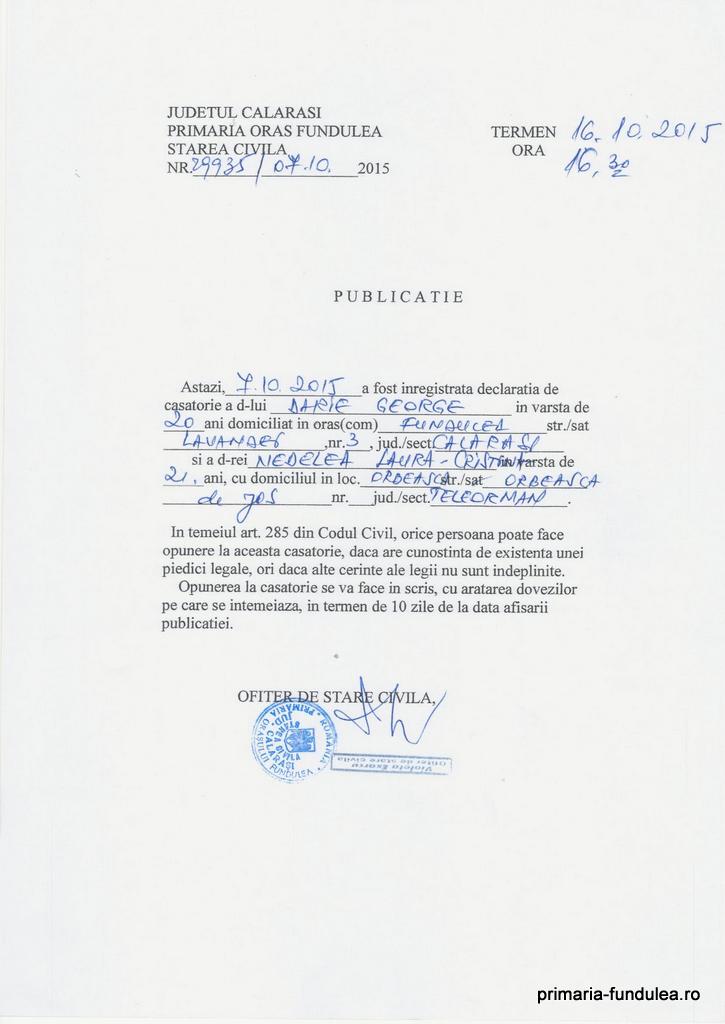 JUDETUL CALARASI
PRIMARIA ORAS FUNDULEA
STAREA CIVILA
NR. 29935/07.10. 2015
TERMEN 16.10.2015
ORA 16,30
PUBLICATIE
Astazi, 7.10.2015 a fost inregistrata declaratia de
casatorie a d-lui DARIE GEORGE in varsta de
20 ani domiciliat in oras(com) FUNDULEA str./sat
,nr. 3, jud./sect. CALARASI
si a d-rei NEDELEA LAURA-CRISTINA in varsta de
21, ani, cu domiciliul in loc. ORBEASCA str./sat ORBEASCA
de JOS nr. jud./sect. TELEORMAN.
In temeiul art. 285 din Codul Civil, orice persoana poate face
opunere la aceasta casatorie, daca are cunostinta de existenta unei
piedici legale, ori daca alte cerinte ale legii nu sunt indeplinite.
Opunerea la casatorie se va face in scris, cu aratarea dovezilor
pe care se intemeiaza, in termen de 10 zile de la data afisarii
publicatiei.
OFITER DE STARE CIVILA,
ROMANIA
PRIMĂRIA ORAȘULUI FUNDULEA
JUD. CALARASI
STAREA CIVILA
Violeta Esarcu
Ofiter de stare civila
primaria-fundulea.ro